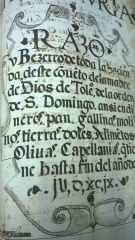 RAZO
y Bezerro de toda la hazien
da, deste coveto de la madre
de Dios de Tolº. de la orden
de S. Domingo. ansi en di
nero, pan, gallinas, moli
nos, tierras, dotes, Alimētos
Olivas, Capellanias, q̄ tie
ne hasta fin del año de
IU, D, XC, IX.